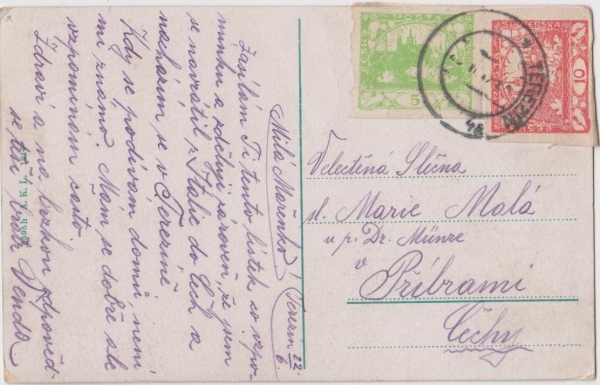 Milá Mařenko! Terezín 22/6.
Zasílám Ti tento lístek co vzpo-
mínku a sděluji zároveň, že jsem
se navrátil z Italie do Čech a
nacházím se v Terezíně
Kdy se podívám domů není
mi známo. Mám se dobře ale
vzpomínám často.
Zdraví a na brzkou odpověď
se těší bratr Venda
POSTA
5
10
TEREZÍN
Velectěná Slečna
sl. Marie Malá
u p. Dr. Münze
v Příbrami
Čechy